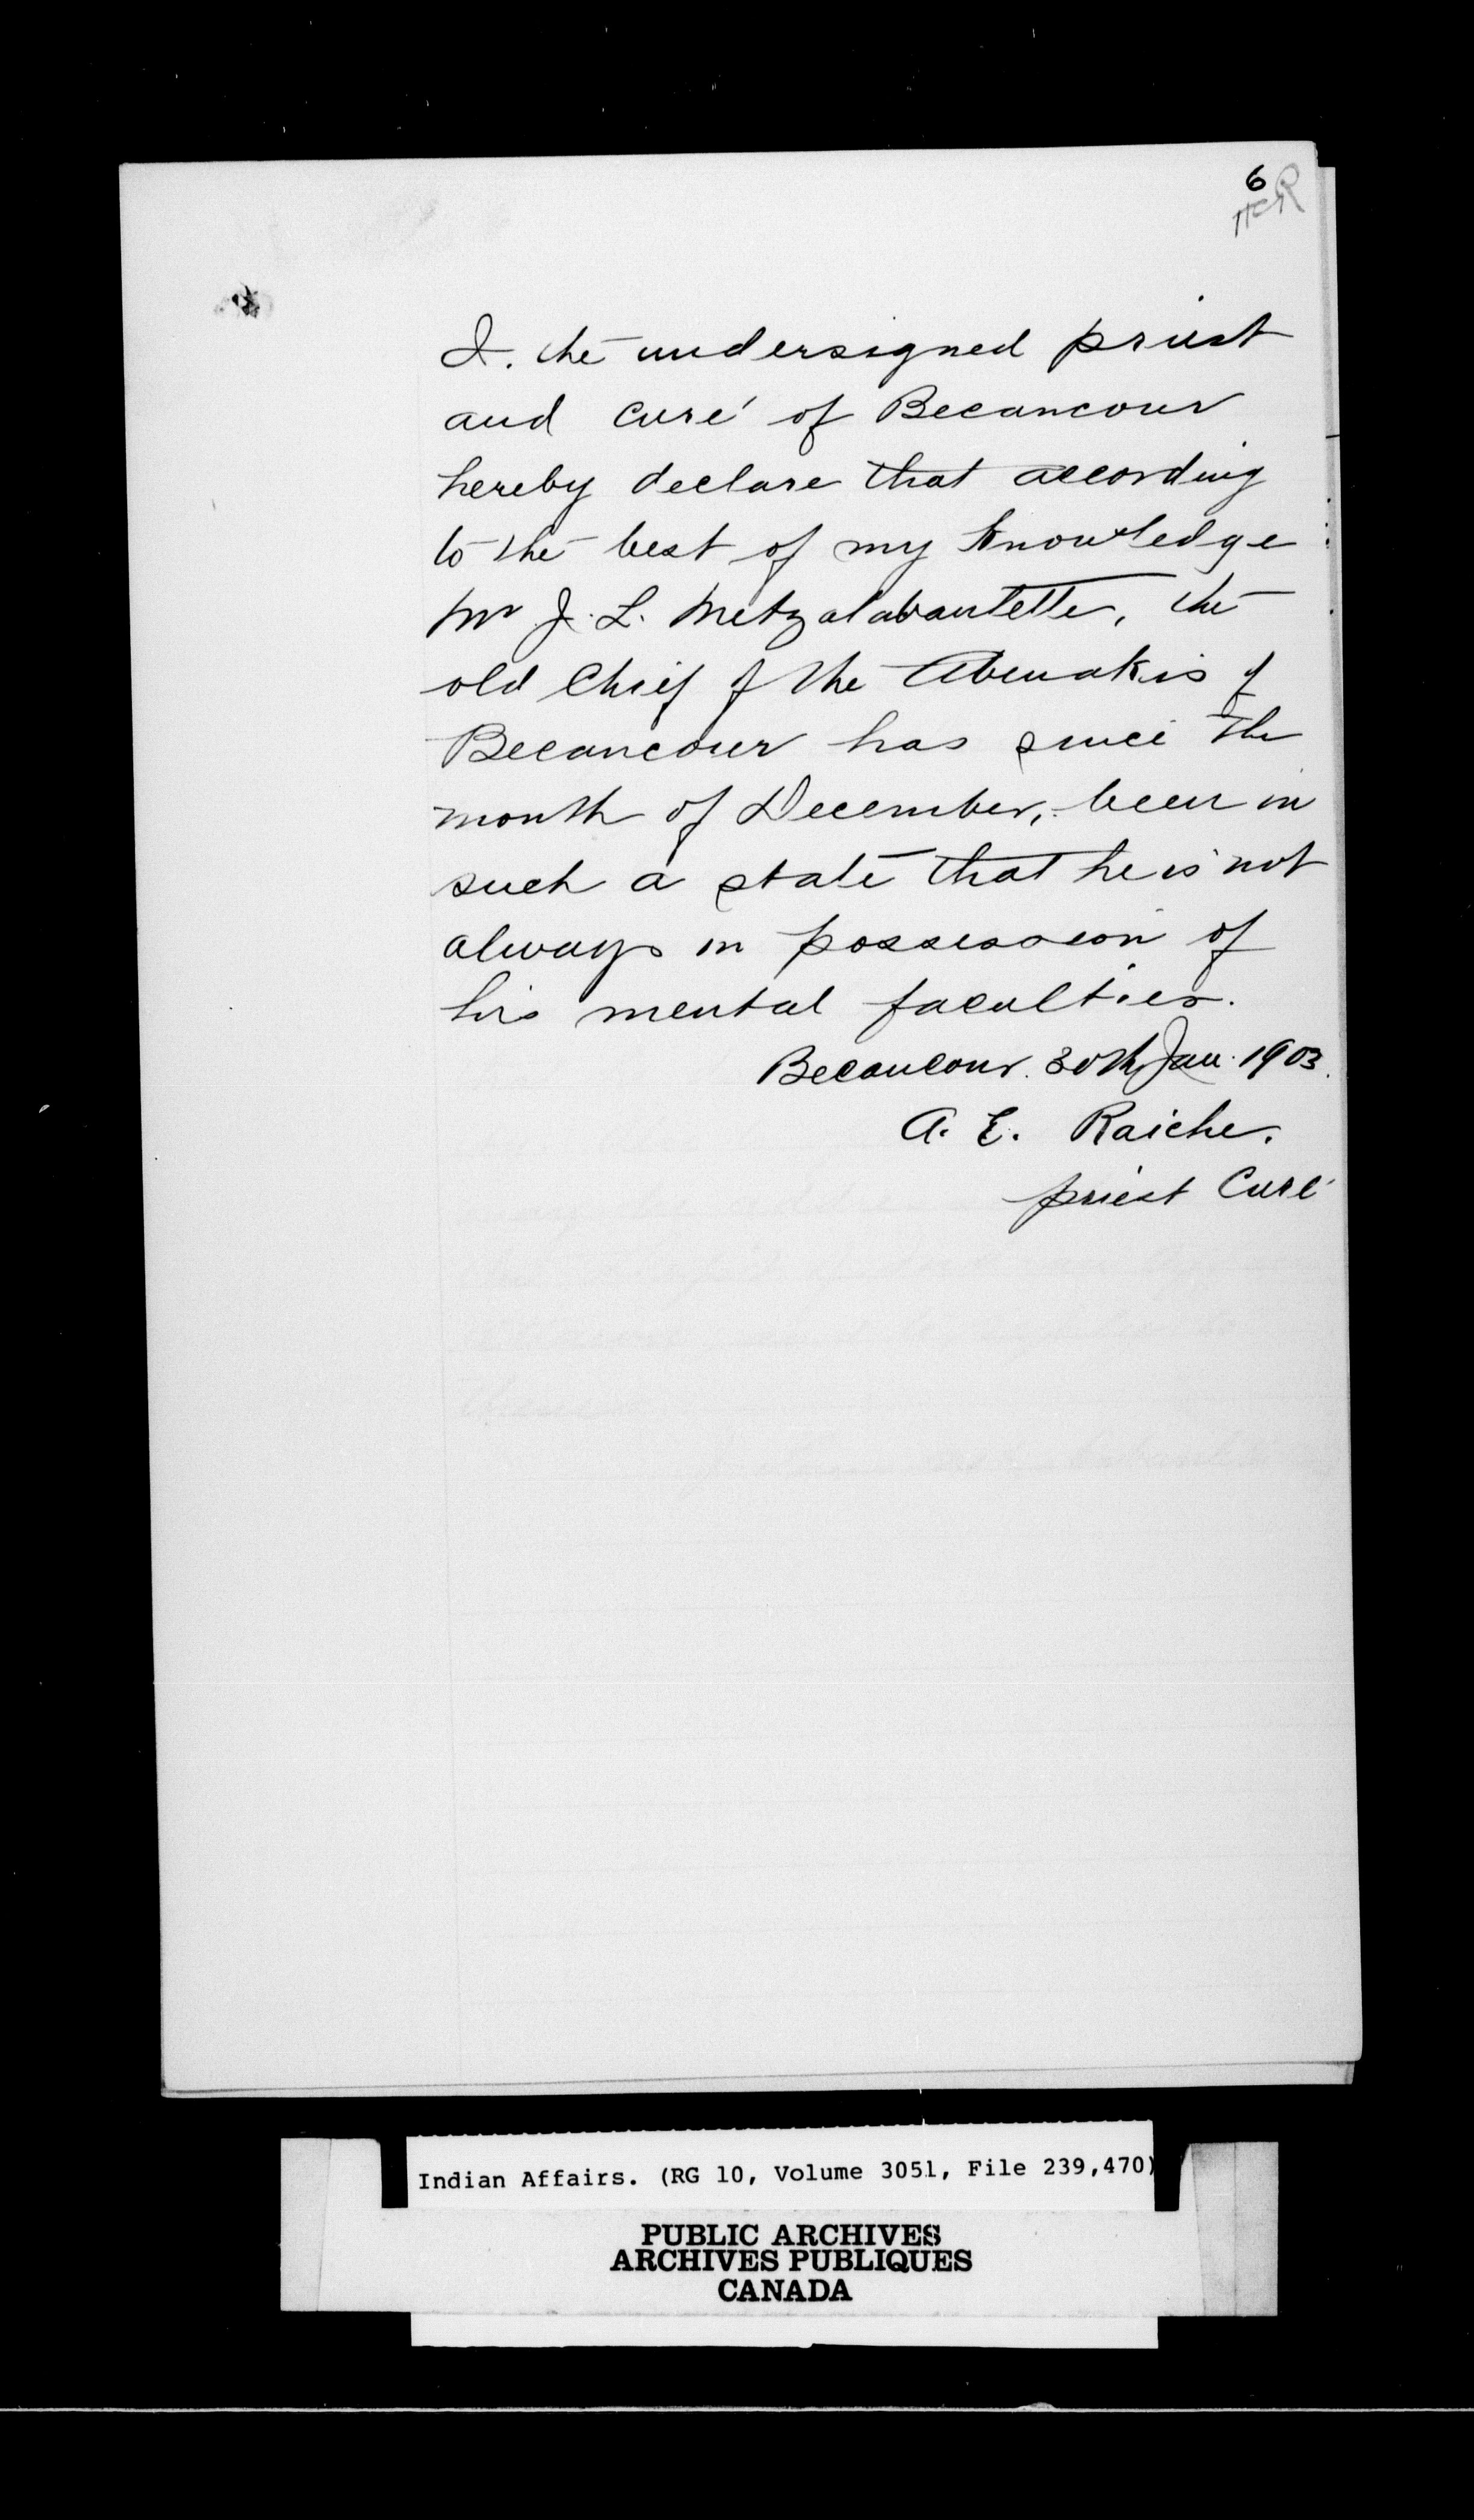 6
I. the undersigned priest
and curé of Becancour
hereby declare that according
to the best of my knowledge
Mr J. L. Metzalabautette, the
old Chief of the Abenakis of
Becancour has since the
month of December, been in
such a state that he is not
always in possession of
his mental faculties.
Becancour. 30th Jan. 1903.
A. E. Raiche.
priest Curé
Indian Affairs. (RG 10, Volume 3051, File 239,470)
PUBLIC ARCHIVES
ARCHIVES PUBLIQUES
CANADA